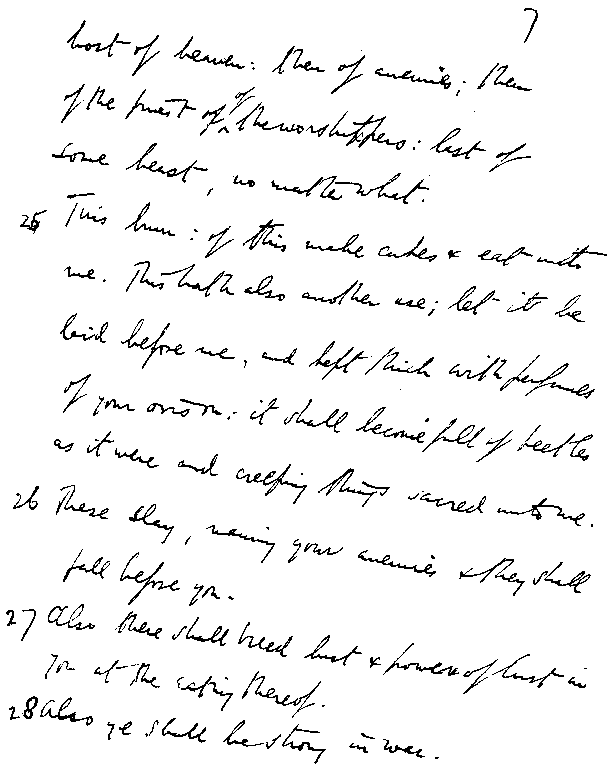 7
host of heaven: then of enemies; then
of the priest of
of the worshippers: last of
some beast, no matter what.
25 This burn: of this make cakes & eat unto
me. This hath also another use; let it be
laid before me, and kept thick with perfumes
of your orison: it shall become full of beetles
as it were and creeping things sacred unto me.
26 These slay, naming your enemies & they shall
fall before you.
27 Also these shall breed lust & power of lust in
you at the eating thereof.
28 Also ye shall be strong in war.